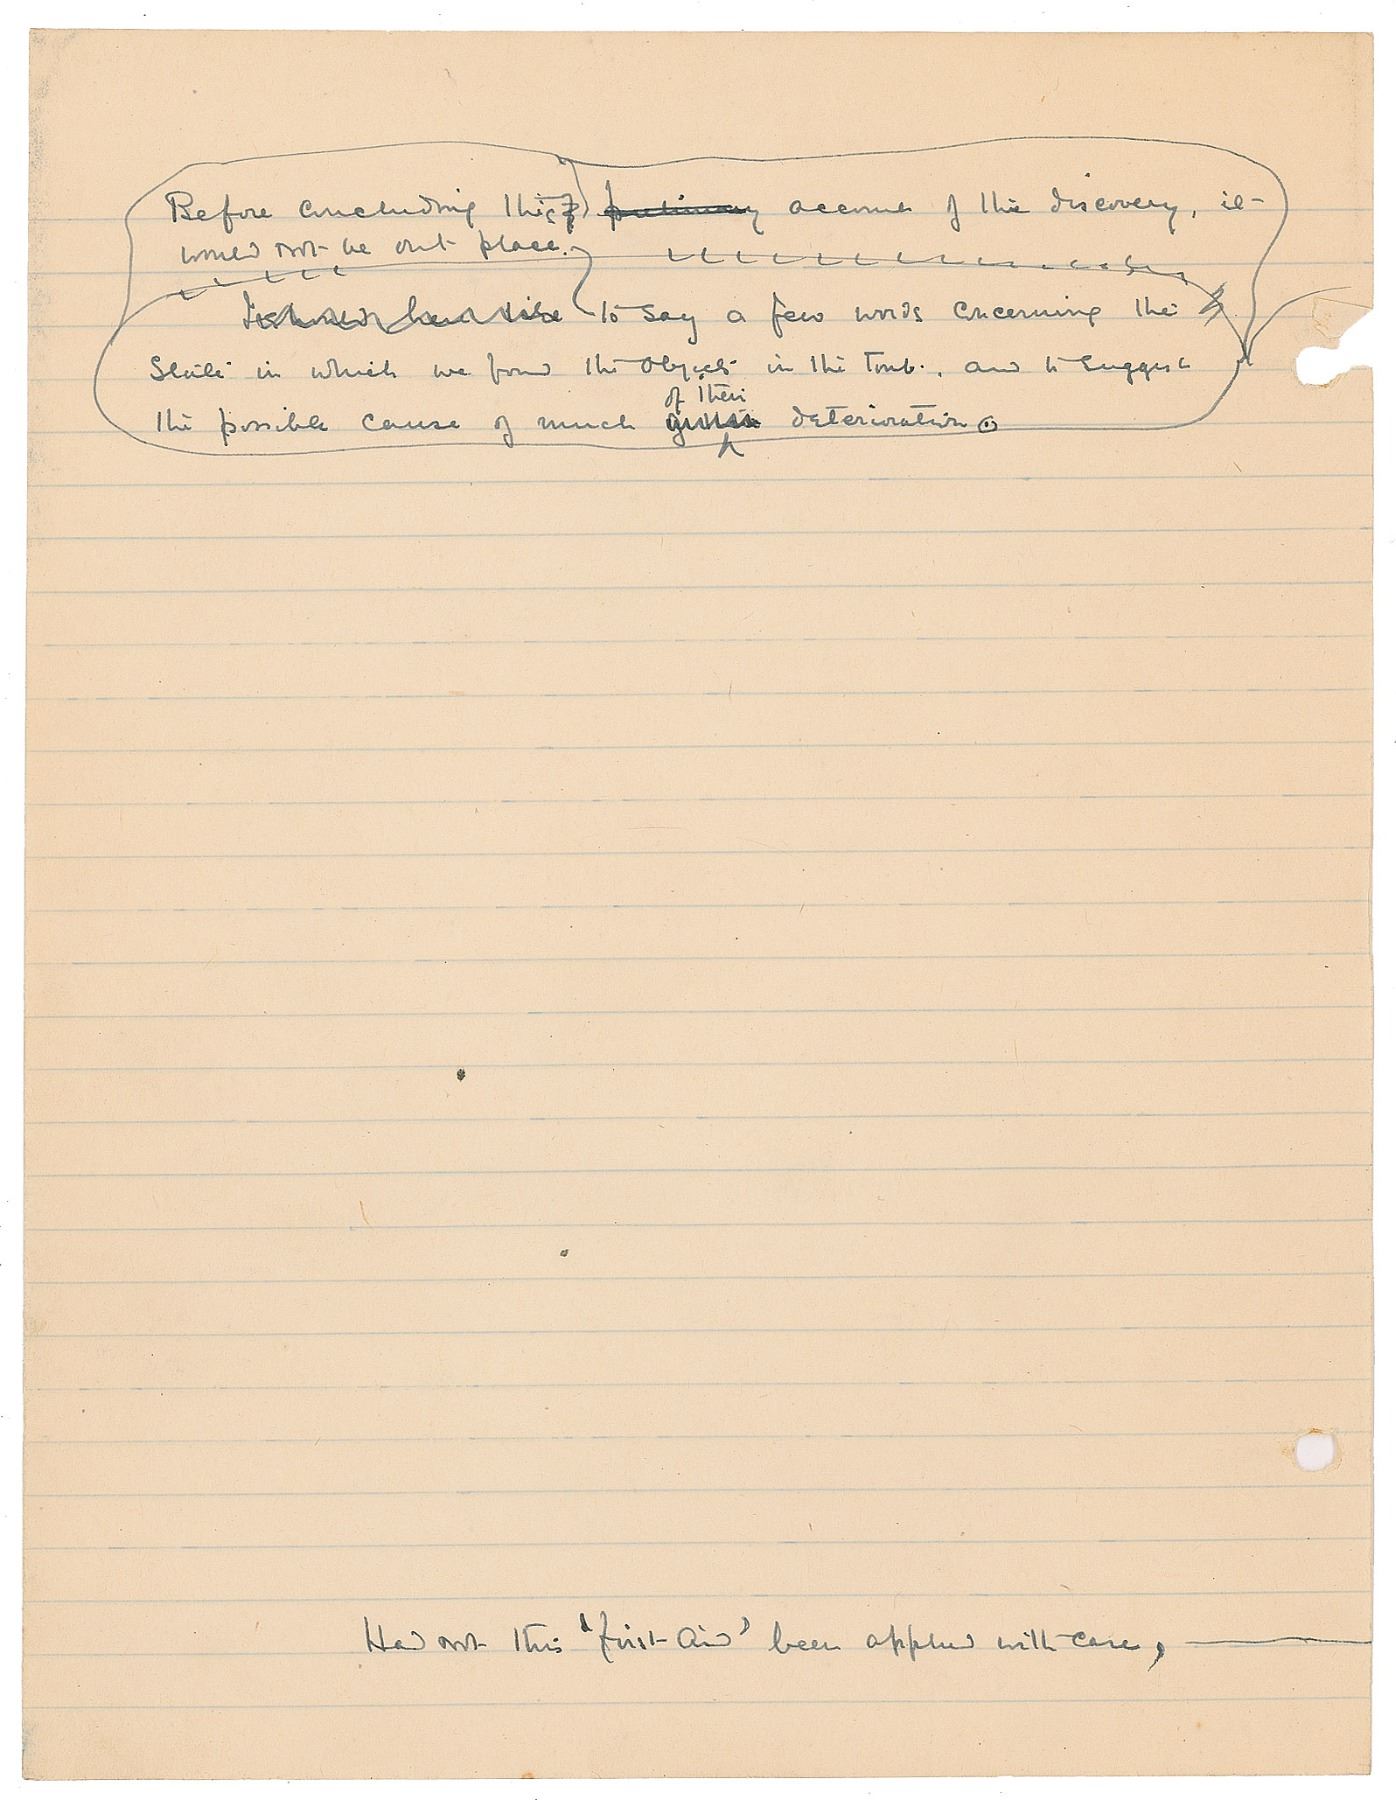 Before concluding this account of the discovery, it
would not be out place.
I should here like to say a few words concerning the
state in which we found the objects in the tomb, and to suggest
of their
the possible cause of much deterioration.
Had not this 'first-aid' been applied with care,